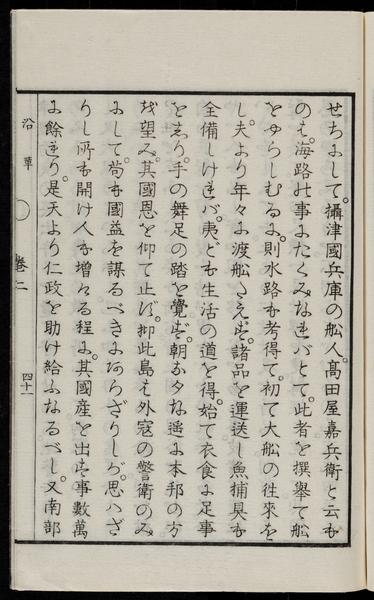 せちにして。攝津國兵庫の舩人。髙田屋嘉兵衛と云も
のハ。海路の事にたくみなれバとて。此者を撰擧て舩
をやらしむるに。則水路を考得て。初て大舩の徃來を
し。夫より年々に渡舩さえぎ。諸品を運送し魚捕具も
全備しけれバ。夷ども生活の道を得。始て衣食に足事
をしり。手の舞足の踏を覺ず。朝なタな遥に本邦の方
を望み。其國恩を仰て止ず。抑此島も外冦の警衛のみ
にして。苟も國益を謀るべきにあらざりしが。思ハざ
りし所も開け人も増々る程に。其國産を出す事數萬
に餘れり。是天より仁政を助け給ふなるべし。又南部
沿革
卷二
四十一